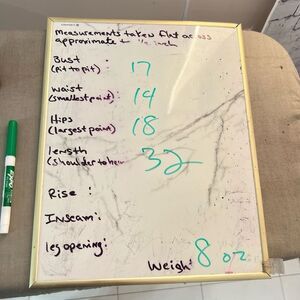 measurements taken flat across
approximate to 1/2 inch
Bust : 17
(Pit to pit)
waist : 14
(smallest point)
Hips : 18
(largest point)
length : 32
(shoulder to hem)
Rise :
Inseam :
leg opening :
Weigh : 8 oz
EXPO